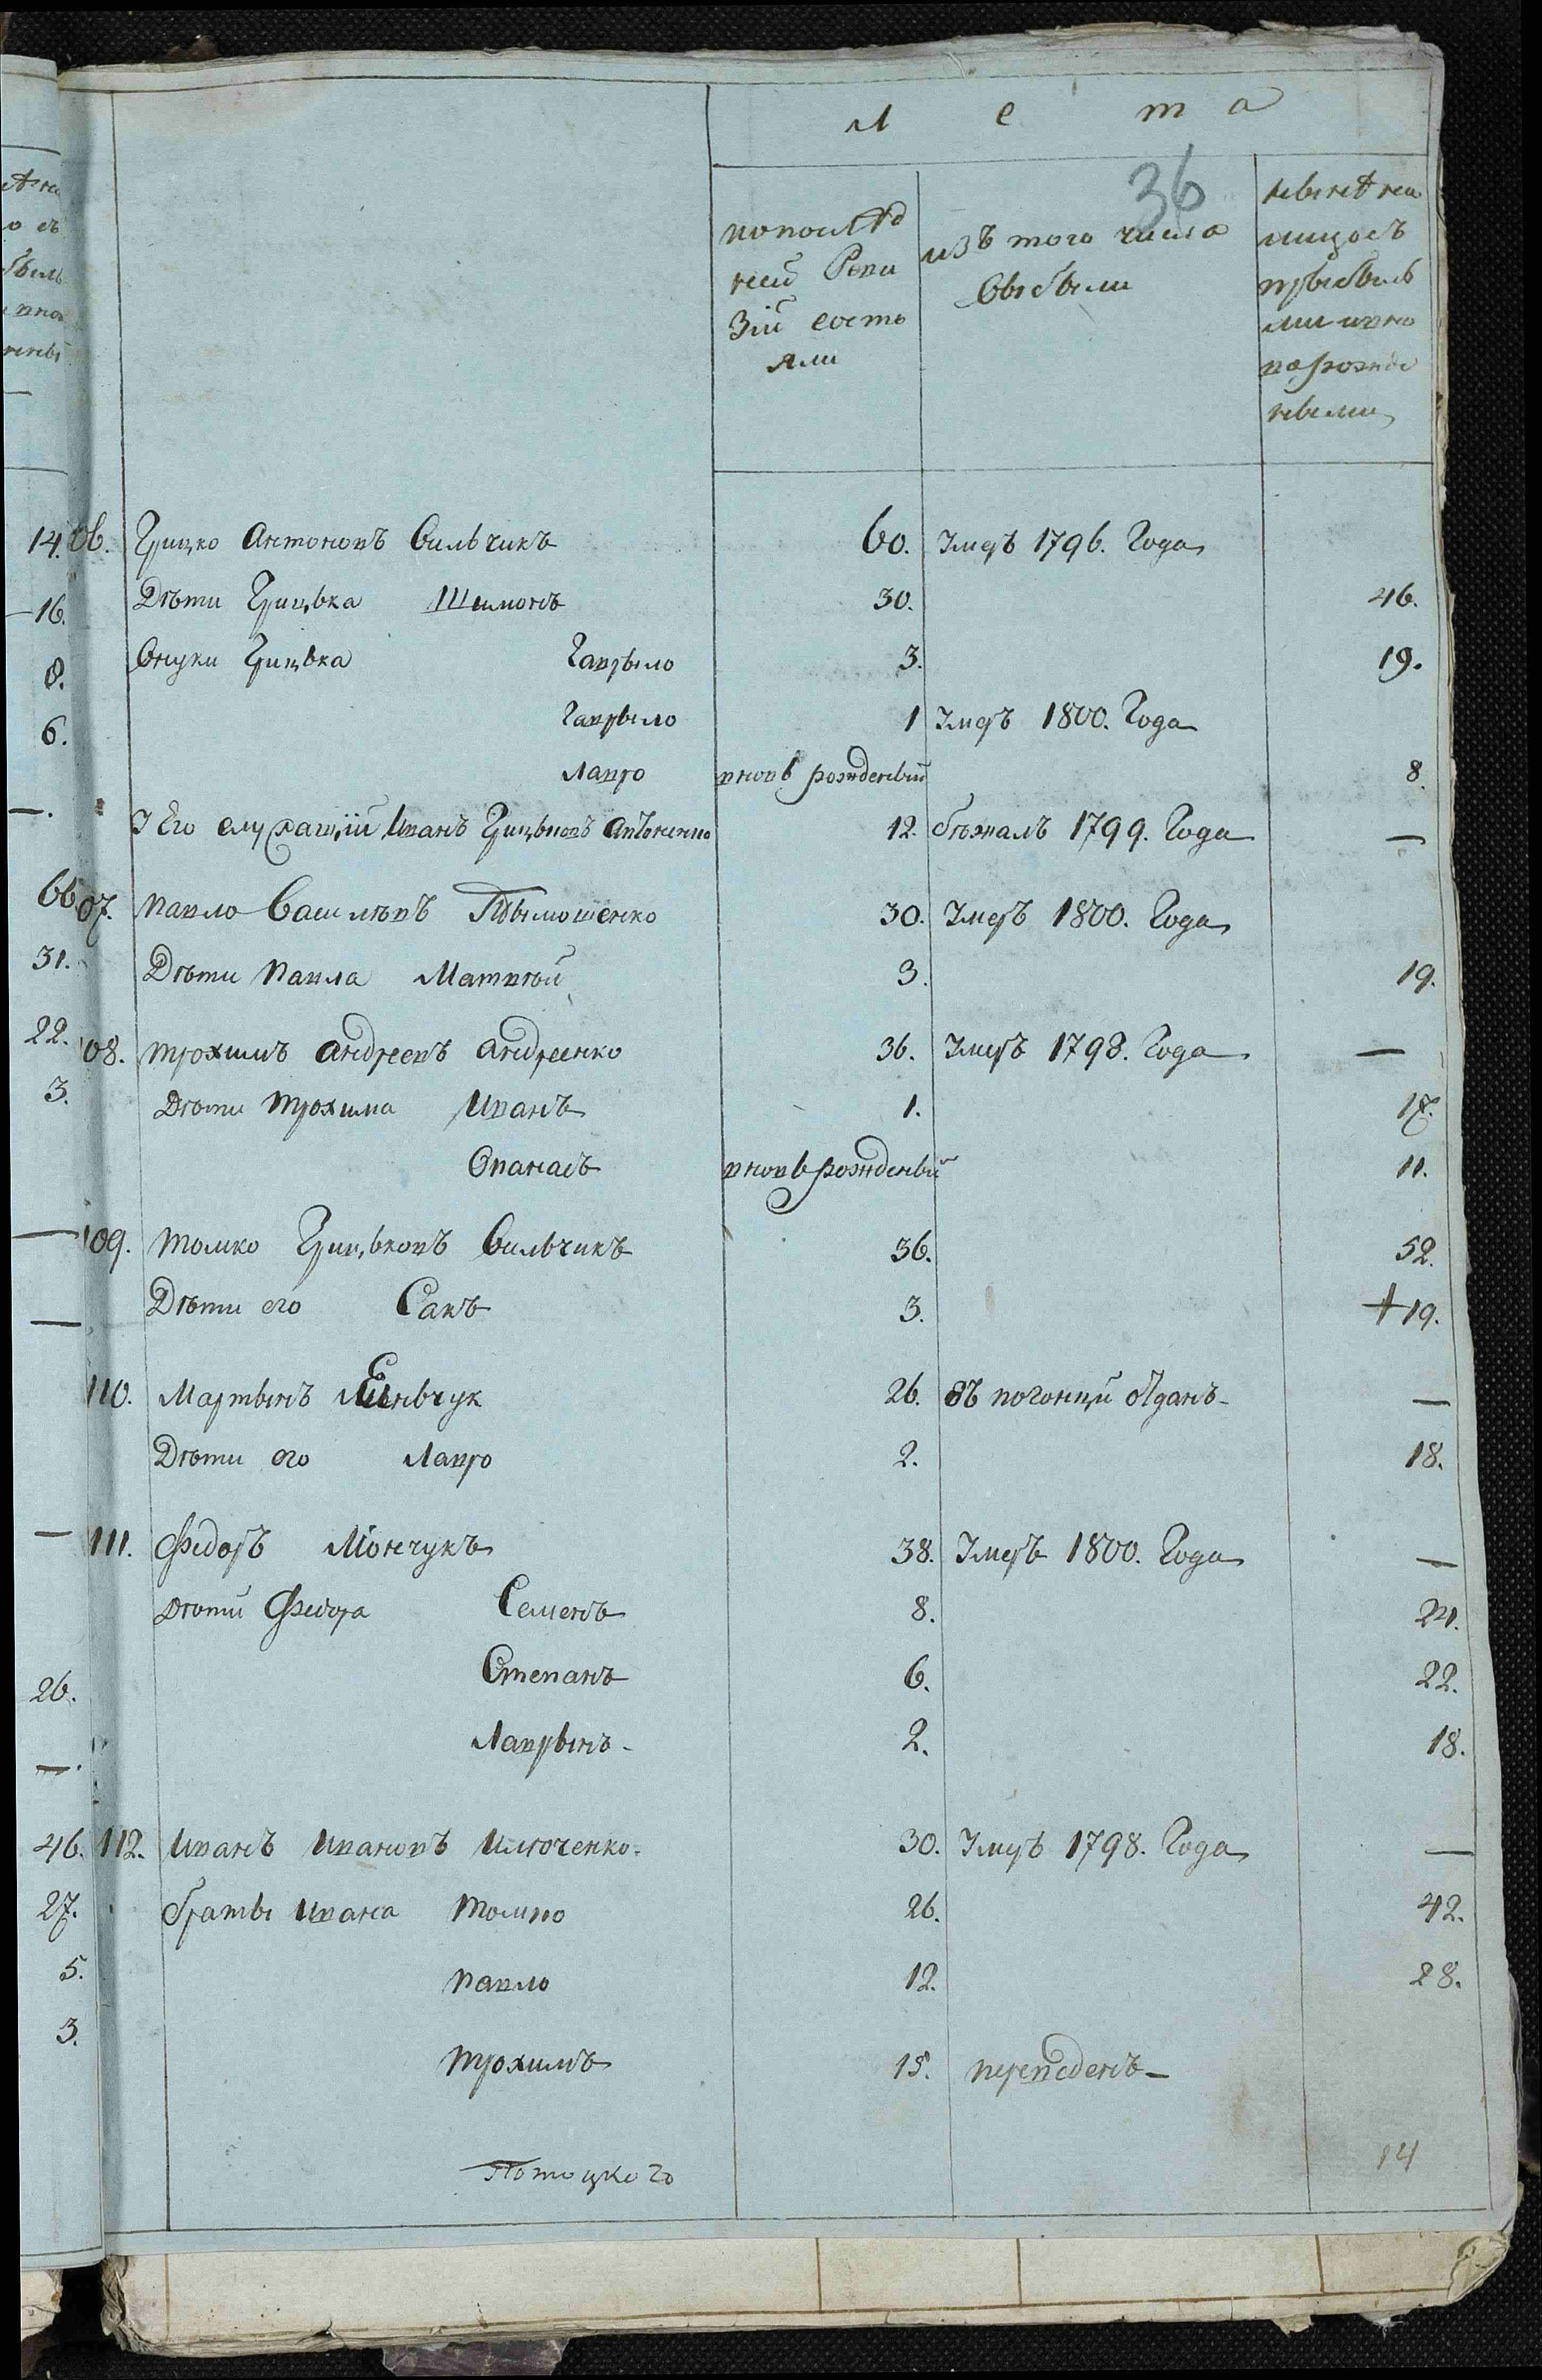 Лета
36
по послѣд
ней Реви
зіи состо
яли
изъ того числа
выбыли
ныне на
лицосъ
прыбыль
ми и вно
варожде
ными
14. 06. Грицко Антоновъ Вильчикъ 60. Умеръ 1796. Года
16. Дѣти Грицька Шимонъ 30. 46.
8. Внуки Грицька Гаврыло 3. 19.
6. Гаврыло 1 Умеръ 1800. Года
Лавро вновь рожденый 8.
—. У Его служащій Иванъ Грицьковъ 12. бѣжалъ 1799. Года —
66. 07. Павло Васильевъ Тымошенко 30. Умеръ 1800. Года
31. Дѣти Павла Матвѣй 3. 19.
22. 108. Трохимъ Андреевъ Андреенко 36. Умеръ 1798. Года —
3. Дѣти Трохима Иванъ 1. 17.
Опанасъ вновь рожденый 11.
— 109. Томко Грицьковъ Вильчикъ 36. 52.
— Дѣти его Сакъ 3. +19.
110. Мартынъ 26. въ погонцы отданъ —
Дѣти его Лавро 2. 18.
— 111. Федоръ Мончукъ 38. Умеръ 1800. Года —
Дѣти Федора Семенъ 8. 24.
26. Степанъ 6. 22.
—. Лаврынъ 2. 18.
46. 112. Иванъ Ивановъ Илюченко 30. Умеръ 1798. Года —
27. браты Ивана Томко 26. 42.
5. Павло 12. 28.
3. Трохимъ 15. переведенъ —
Потоцкого
14